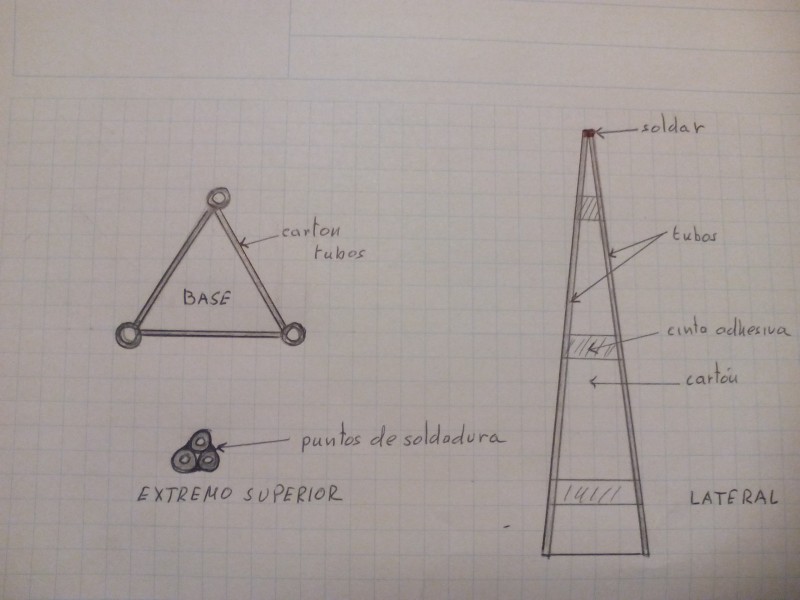 soldar
carton
tubos
BASE
tubos
cinta adhesiva
cartón
puntos de soldadura
EXTREMO SUPERIOR
LATERAL